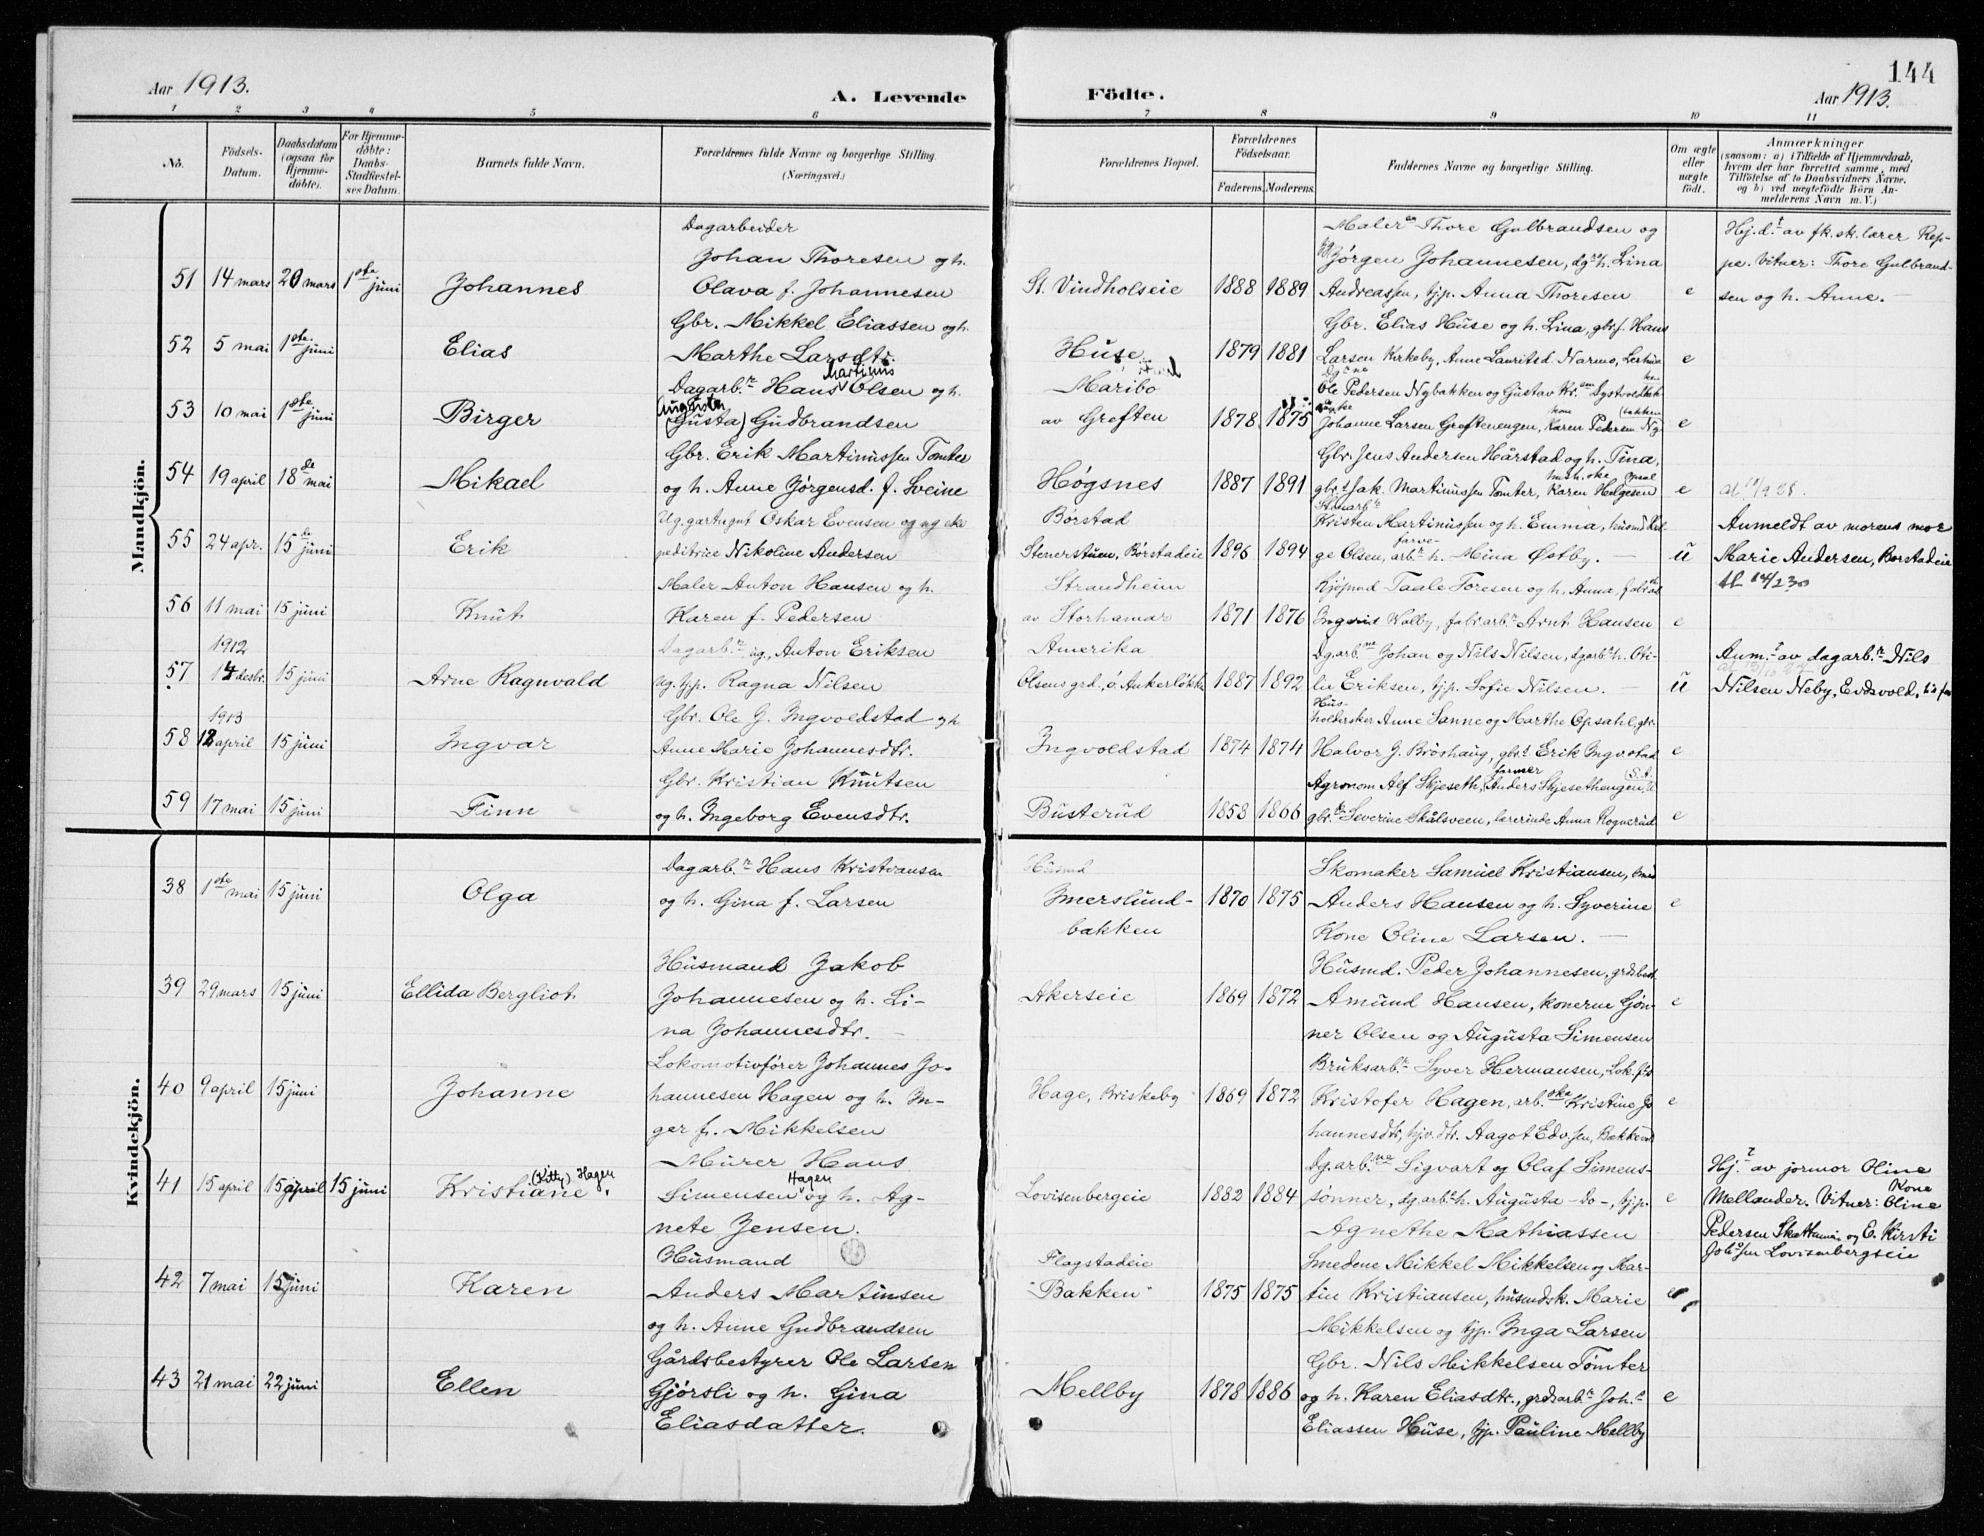 144
Aar 1913.
A. Levende
Födte.
Aar 1913.
1 2 3 4 5 6 7 8 9 10 11
No.
Födsels-
Datum.
Daabsdatum
(ogsaa for
Hjemme-
döbte).
For Hjemme-
döbte:
Daabs-
Stadfæstel-
ses Datum.
Barnets fulde Navn.
Forældrenes fulde Navne og borgerlige Stilling.
(Næringsvei.)
Forældrenes Bopæl.
Forældrenes
Födselsaar.
Faderens. Moderens.
Faddernes Navne og borgerlige Stilling.
Om ægte
eller
uægte
födt.
Anmærkninger
(saasom: a) i Tilfælde af Hjemmedaab,
hvem der har forrettet samme, med
Tilföielse af to Daabsvidners Navne,
og b) ved uægtefödte Börn An-
melderens Navn m. V.)
Mandkjön.
51 14 mars 20 mars 1ste juni Johannes
Dagarbeider
Johan Thoresen og h.
Olava f. Johannesen
St. Vindholseie 1888 1889
Maler Thore Gulbrandsen og
Jørgen Johannesen, dg. h. Lina
Andreassen, tjp. Anna Thoresen
e
Hj.d.t av fk.sk.lærer Rep-
pe. Vitner: Thore Gulbrand-
sen og h. Anne.
52 5 mai 1ste juni Elias
Gbr. Mikkel Eliassen og h.
Marthe Larsdtr.
Huse 1879 1881
Gbr. Elias Huse og h. Lina, gbr.f. Hans
Larsen Kirkeby, Anne Lauritsd. Narmo,
e
53 10 mai 1ste juni Birger
Dagarb.r Hans Martinus Olsen og h.
Augusta (Gusta) Gudbrandsen
Maribo
av Greften 1878 1875
Ole Pedersen Nybakken og Gustav Kr.
Johanne Larsen Greftenengen, Karen Pedersen Ny-
e
54 19 april 18de mai Mikael
Gbr. Erik Martinussen Tomter
og h. Anne Jørgensd. f. Sveine
Høgsnes 1887 1891
Gbr. Jens Andersen Hårstad og h. Tina,
gbr.s sak. Martinussen Tomter, Karen Helgesen
e
55 24 apr. 15de juni Erik
Ug. gartngut Oskar Evensen og ug. eks
peditrice Nikoline Andersen
Børstad
Stenerstuen, Børstadeie 1896 1894
Kristen Martinussen og h. Emma, husmd Hel
ge Olsen, arb.r h. Mina Østby.
ü
Anmeldt av morens mor
Marie Andersen, Børstadeie
56 11 mai 15 juni Knut
Maler Anton Hansen og h.
Karen f. Pedersen
Strandheim
av Storhamar 1871 1876
Kjøpmd Taale Toresen og h. Anna,
Ingerid Walby, fabr.arb.r Arnt Hansen
e
57 1912 14 desbr. 15 juni Arne Ragnvald
Dagarb.r ug. Anton Eriksen
ug. tjp. Ragna Nilsen
Amerika
Olsens grd., ø. Ankerløkke 1887 1892
Dg.arb.ne Johan og Nils Nilsen, dg.arb.h. Oti-
lie Eriksen, tjp. Sofie Nilsen.
ü
Anm.t av dagarb.r Nils
Nilsen Neby, Eidsvold,
58 1913 12 april 15 juni Ingvar
Gbr. Ole G. Ingvoldstad og h.
Anne Marie Johannesdtr.
Ingvoldstad 1874 1874
Hus-
holdersker Anne Sanne og Marthe Opsahl, gbr.
Halvor J. Brøshaug, gbr.s Erik Ingvolstad
e
59 17 mai 15 juni Finn
Gbr. Kristian Knutsen
og h. Ingeborg Evensdtr.
Busterud 1858 1866
Agronom Alf Skjeseth, farmer Anders Skjesethengen,
gbr. Severine Skålsveen, lærerinde Anna Rognerud
e
Kvindekjön.
38 1ste mai 15 juni Olga
Dagarb.r Hans Kristiansen
og h. Gina f. Larsen
Husmd
Imerslund-
bakken
1870 1875
Skomaker Samuel Kristiansen,
Anders Hansen og h. Syverine
Kone Oline Larsen.
e
39 29 mars 15 juni Ellida Bergliot
Husmand Jakob
Johannesen og h. Li-
na Johannesdtr.
Akerseie 1869 1872
Husmd. Peder Johannesen,
Amund Hansen, konerne Gjøn-
ner Olsen og Augusta Simensen
e
40 9 april 15 juni Johanne
Lokomotivfører Johannes Jo-
hannesen Hagen og h. In-
ger f. Mikkelsen
Hage, Briskeby 1869 1872
Bruksarb.r Syver Hermansen, Lok.f.
Kristofer Hagen, arb.ske Kristine Jo
hannesdtr, Aagot Edv.sen,
e
41 15 april 15 april 15 juni Kristiane (Kitty) Hagen
Murer Hans
Simensen Hagen og h. Ag-
nete Jensen.
Lovisenbergeie 1882 1884
Dg.arb.ne Sigvart og Olaf Simens-
sønner, dg.arb.h. Augusta -Do-, tjp.
Agnethe Mathiassen
e
Hj.t av jormor Oline
Mellander. Vitner: Kone Oline
Pedersen Skattum og E. Kirsti
Joh.sen Lovisenbergseie
42 7 mai 15 juni Karen
Husmand
Anders Martinsen
og h. Anne Gudbrandsen
Flagstadeie
"Bakken" 1875 1875
Smedene Mikkel Mikkelsen og Mar-
tin Kristiansen, husmdsk. Marie
Mikkelsen og tjp. Inga Larsen
e
43 21 mai 22 juni Ellen
Gårdsbestyrer Ole Larsen
Gjørsli og h. Gina
Eliasdatter.
Mellby 1878 1886
Gbr. Nils Mikkelsen Tømter
og h. Karen Eliasdtr., grdsarb.r Joh.s
Eliassen Huse, tjp. Pauline Mellby
e